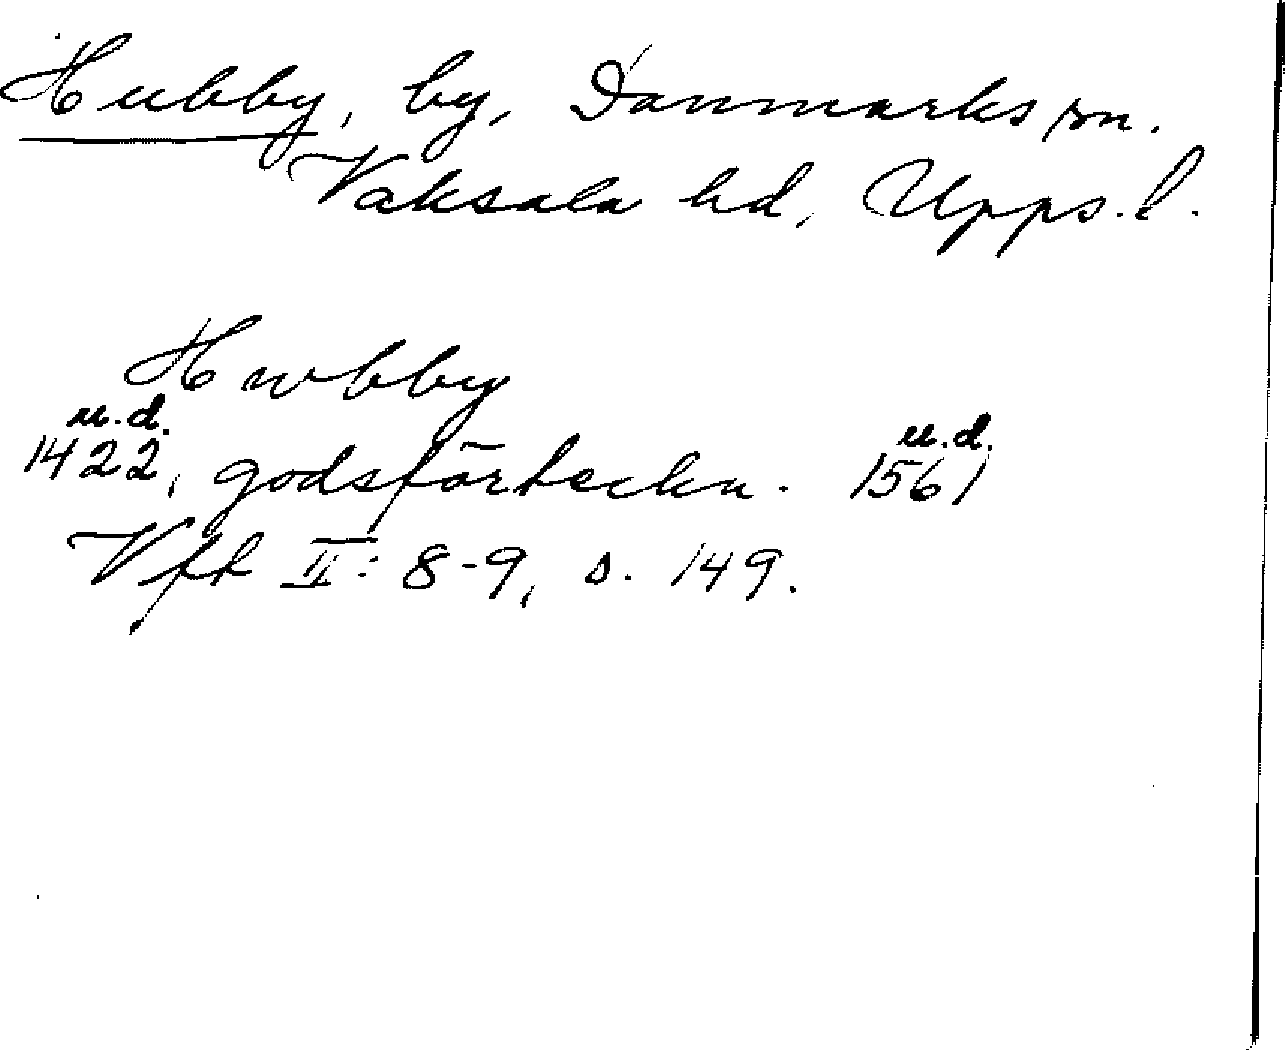 Hubby, by, Danmarks sn.
Vaksala hd, Upps. l.
Hwbby
u.d. u.d.
1422, godsförteckn. 1561
Vfk II: 8-9, s. 149.